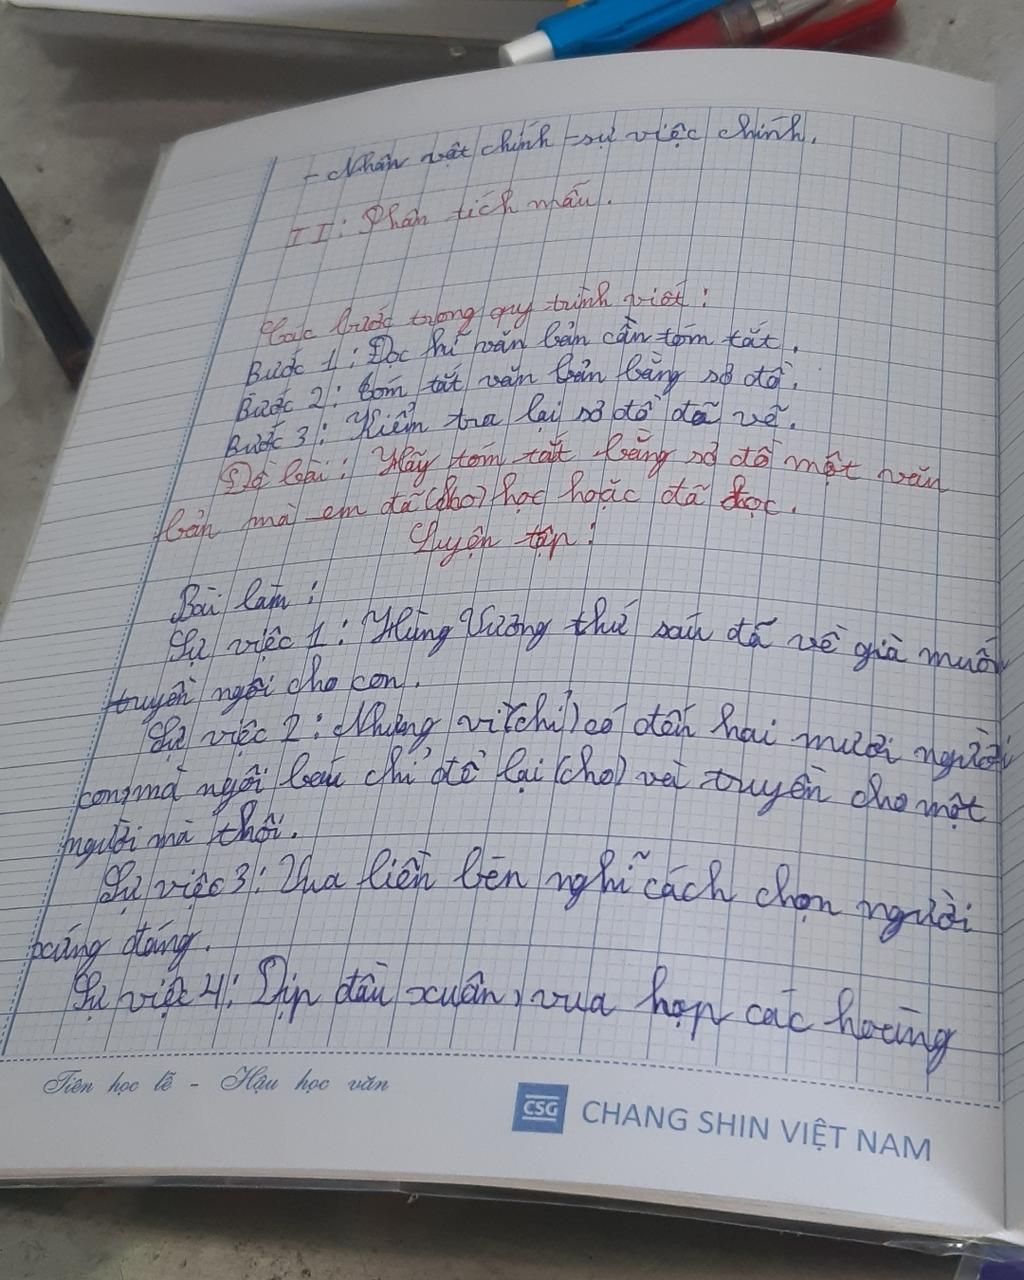 - Nhân vật chính - sự việc chính.
II: Phân tích mẫu.
Các bước trong quy trình viết:
Bước 1: Đọc kĩ văn bản cần tóm tắt.
Bước 2: tóm tắt văn bản bằng sơ đồ.
Bước 3: Kiểm tra lại sơ đồ đã vẽ.
Đề bài: Hãy tóm tắt bằng sơ đồ một văn
bản mà em đã (cho) học hoặc đã đọc.
Luyện tập:
Bài làm:
Sự việc 1: Hùng Vương thứ sáu đã về già muốn
truyền ngôi cho con.
Sự việc 2: Nhưng vì (chỉ) có đến hai mươi người
con, mà ngôi báu chỉ để lại (cho) và truyền cho một
người mà thôi.
Sự việc 3: Vua liền bèn nghĩ cách chọn người
xứng đáng.
Sự việc 4: Dịp đầu xuân, vua họp các hoàng
Tiên học lễ - Hậu học văn
CSG CHANG SHIN VIỆT NAM